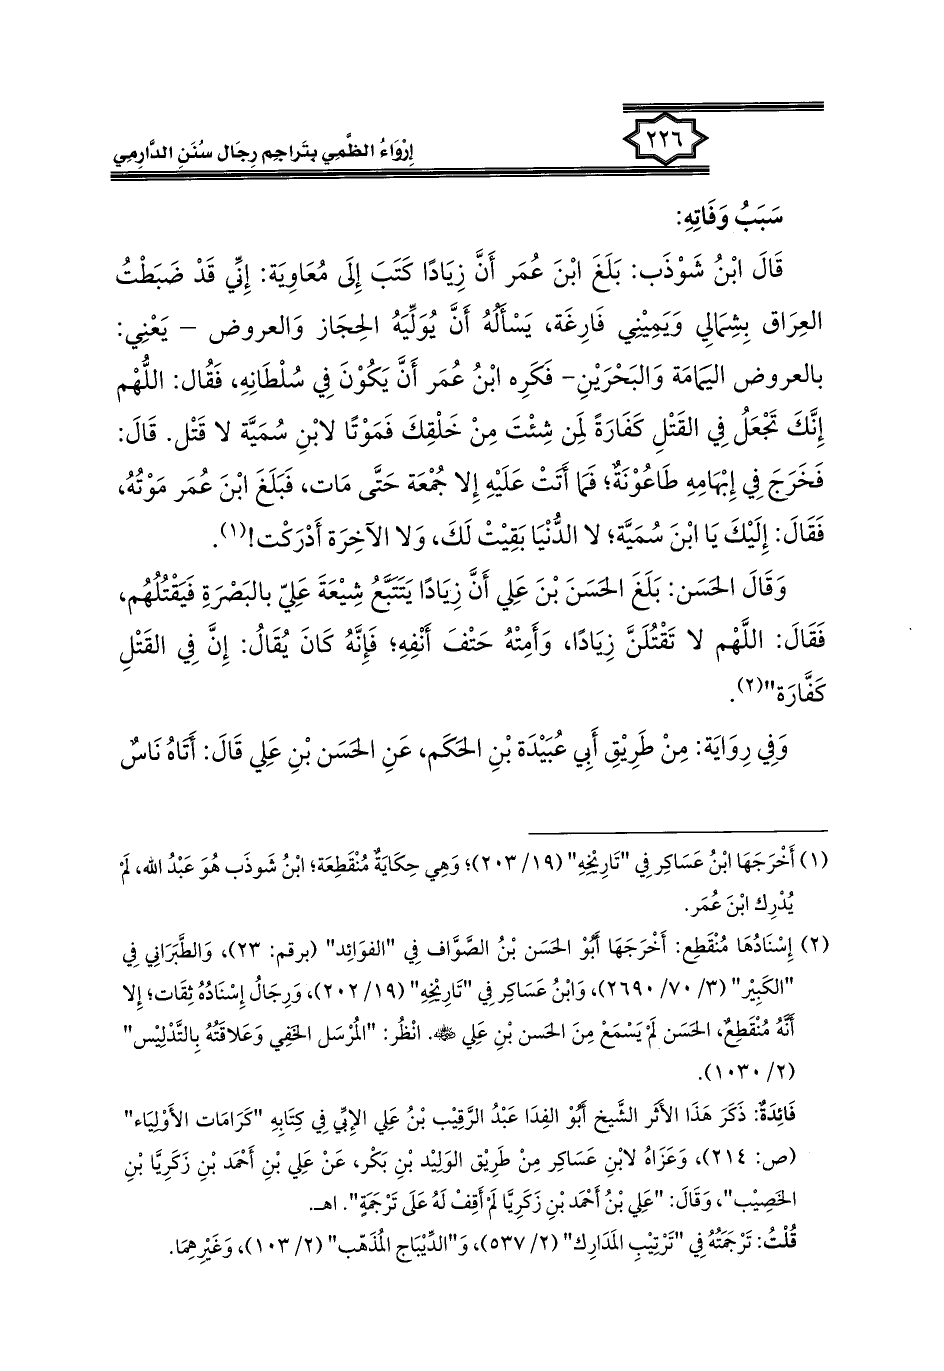 ٢٢٦
إرْوَاءُ الظَّمِي بتَراجِم رِجَال سُنَنِ الدَّارِمِي
سَبَبُ وَفَاتِهِ:
قَالَ ابْنُ شَوْذَب: بَلَغَ ابْنَ عُمَر أَنَّ زِيَادًا كَتَبَ إِلَى مُعَاوِية: إِنِّي قَدْ ضَبَطْتُ
العِرَاق بِشِمَالِي وَيَمِيْنِي فَارِغَة، يَسأَلُهُ أَنَّ يُوَلِّيَهُ الحِجَاز وَالعروض – يَعْنِي:
بالعروض اليَمَامَة وَالبَحْرَيْنِ– فَكَرِه ابْنُ عُمَر أَنَّ يَكُوْنَ فِي سُلْطَانِهِ، فَقُال: اللُّهْم
إِنَّكَ تَجْعَلُ فِي القَتْل كَفَارَةً لِمَن شِئْتَ مِنْ خَلْقِكَ فَمَوْتًا لابْنِ سُمَيَّة لا قَتْل. قَالَ:
فَخَرَجَ فِي إبْهَامِهِ طَاعُوْنَةٌ؛ فَمَا أَتَتْ عَلَيْهِ إِلا جُمْعَة حَتَّى مَات، فَبَلَغَ ابْنَ عُمَر مَوْتُهُ،
فَقَالَ: إِلَيْكَ يَا ابْنَ سُمَيَّة؛ لا الدُّنْيَا بَقِيَتْ لَكَ، وَلا الآخِرَة أَدْرَكْت!(١).
وَقَالَ الحَسَن: بَلَغَ الحَسَنَ بْنَ عَلي أَنَّ زِيَادًا يَتَتَبَّعُ شِيْعَةَ عَلِيّ بالبَصْرَةِ فَيَقْتُلُهُم،
فَقَالَ: اللَّهْم لا تَقْتُلَنَّ زِيَادًا، وَأَمِتْهُ حَتْفَ أَنْفِهِ؛ فَإِنَّهُ كَانَ يُقَالُ: إِنَّ فِي القَتْلِ
كَفَّارَة"(٢).
وَفِي رِوَايَة: مِنْ طَرِيْقِ أَبِي عُبَيْدَة بْنِ الحَكَم، عَنِ الحَسَن بْنِ عَلِي قَالَ: أَتَاهُ نَاسٌ
(١) أَخْرَجَهَا ابْنُ عَسَاكِر فِي "تَارِيْخِهِ" (١٩/ ٢٠٣)؛ وَهِي حِكَايَةٌ مُنْقَطِعَة؛ ابْنُ شَوذَب هُوَ عَبْدُ الله، لَمْ
يُدْرِك ابْنَ عُمَر.
(٢) إِسْنَادُهَا مُنْقَطِع: أَخْرَجَهَا أَبُو الحَسَن بْنُ الصَّوَّاف فِي "الفَوائِد" (برقم: ٢٣)، وَالطَّبَرَانِي فِي
"الكَبِيْر" (٣/ ٧٠/ ٢٦٩٠)، وَابْنُ عَسَاكِر فِي "تَارِيْخِهِ" (١٩/ ٢٠٢)، وَرِجَالُ إِسْنَادُهُ ثِقَات؛ إِلا
أَنَّهُ مُنْقَطِعٌ، الحَسَن لَمْ يَسْمَعْ مِنَ الحَسن بْنِ عَلِي ﵁. انْظُر: "المُرْسَل الخَفِي وَعَلاقَتُهُ بِالتَّدْلِيْس"
(٢/ ١٠٣٠).
فَائِدَةٌ: ذَكَرَ هَذَا الأَثَر الشَّيخ أَبُوْ الفِدَا عَبْدُ الرَّقِيْب بْنُ عَلِي الإِبِّي فِي كِتَابِهِ "كَرَامَات الأَوْلِيَاء"
(ص: ٢١٤)، وَعَزَاهُ لابْنِ عَسَاكِر مِنْ طَرِيْق الوَلِيْد بْنِ بَكْر، عَنْ عَلِي بْنِ أَحْمَد بْنِ زَكَرِيَّا بْنِ
الخَصِيْب"، وَقَالَ: "عَلِي بْنُ أَحْمَد بْنِ زَكَرِيَّا لَمْ أَقِفْ لَهُ عَلَى تَرْجَمَةٍ". اهـ.
قُلْتُ: تَرْجَمَتُهُ فِي "تَرْتِيْبِ المَدَارِك" (٢/ ٥٣٧)، وَ"الدِّيْبَاج المُذَهّب" (٢/ ١٠٣)، وَغَيْرِهِمَا.